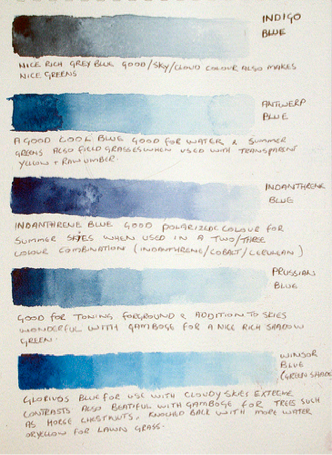 INDIGO
BLUE
NICE RICH GREY BLUE GOOD/SKY/CLOUD COLOUR ALSO MAKES
NICE GREENS
ANTWERP
BLUE
A GOOD COOL BLUE GOOD FOR WATER & SUMMER
GREENS ALSO FIELD GRASSES WHEN USED WITH TRANSPARENT
YELLOW + RAW UMBER.
INDANTHRENE
BLUE
INDANTHRENE BLUE GOOD POLARIZER COLOUR FOR
SUMMER SKIES WHEN USED IN A TWO/THREE
COLOUR COMBINATION (INDANTHRENE/COBALT/CERULEAN)
PRUSSIAN
BLUE
GOOD FOR TONING FORGROUND & ADDITION TO SKIES
WONDERFUL WITH GAMBOGE FOR A NICE RICH SHADOW
GREEN.
WINSOR
BLUE
(GREEN SHADE
GLORIOUS BLUE FOR USE WITH CLOUDY SKIES EXTREME
CONTRASTS ALSO BEATIFUL WITH GAMBOGE FOR TREES SUCH
AS HORSE CHESTNUTS, KNOCKED BACK WITH MORE WATER
OR YELLOW FOR LAWN GRASS.